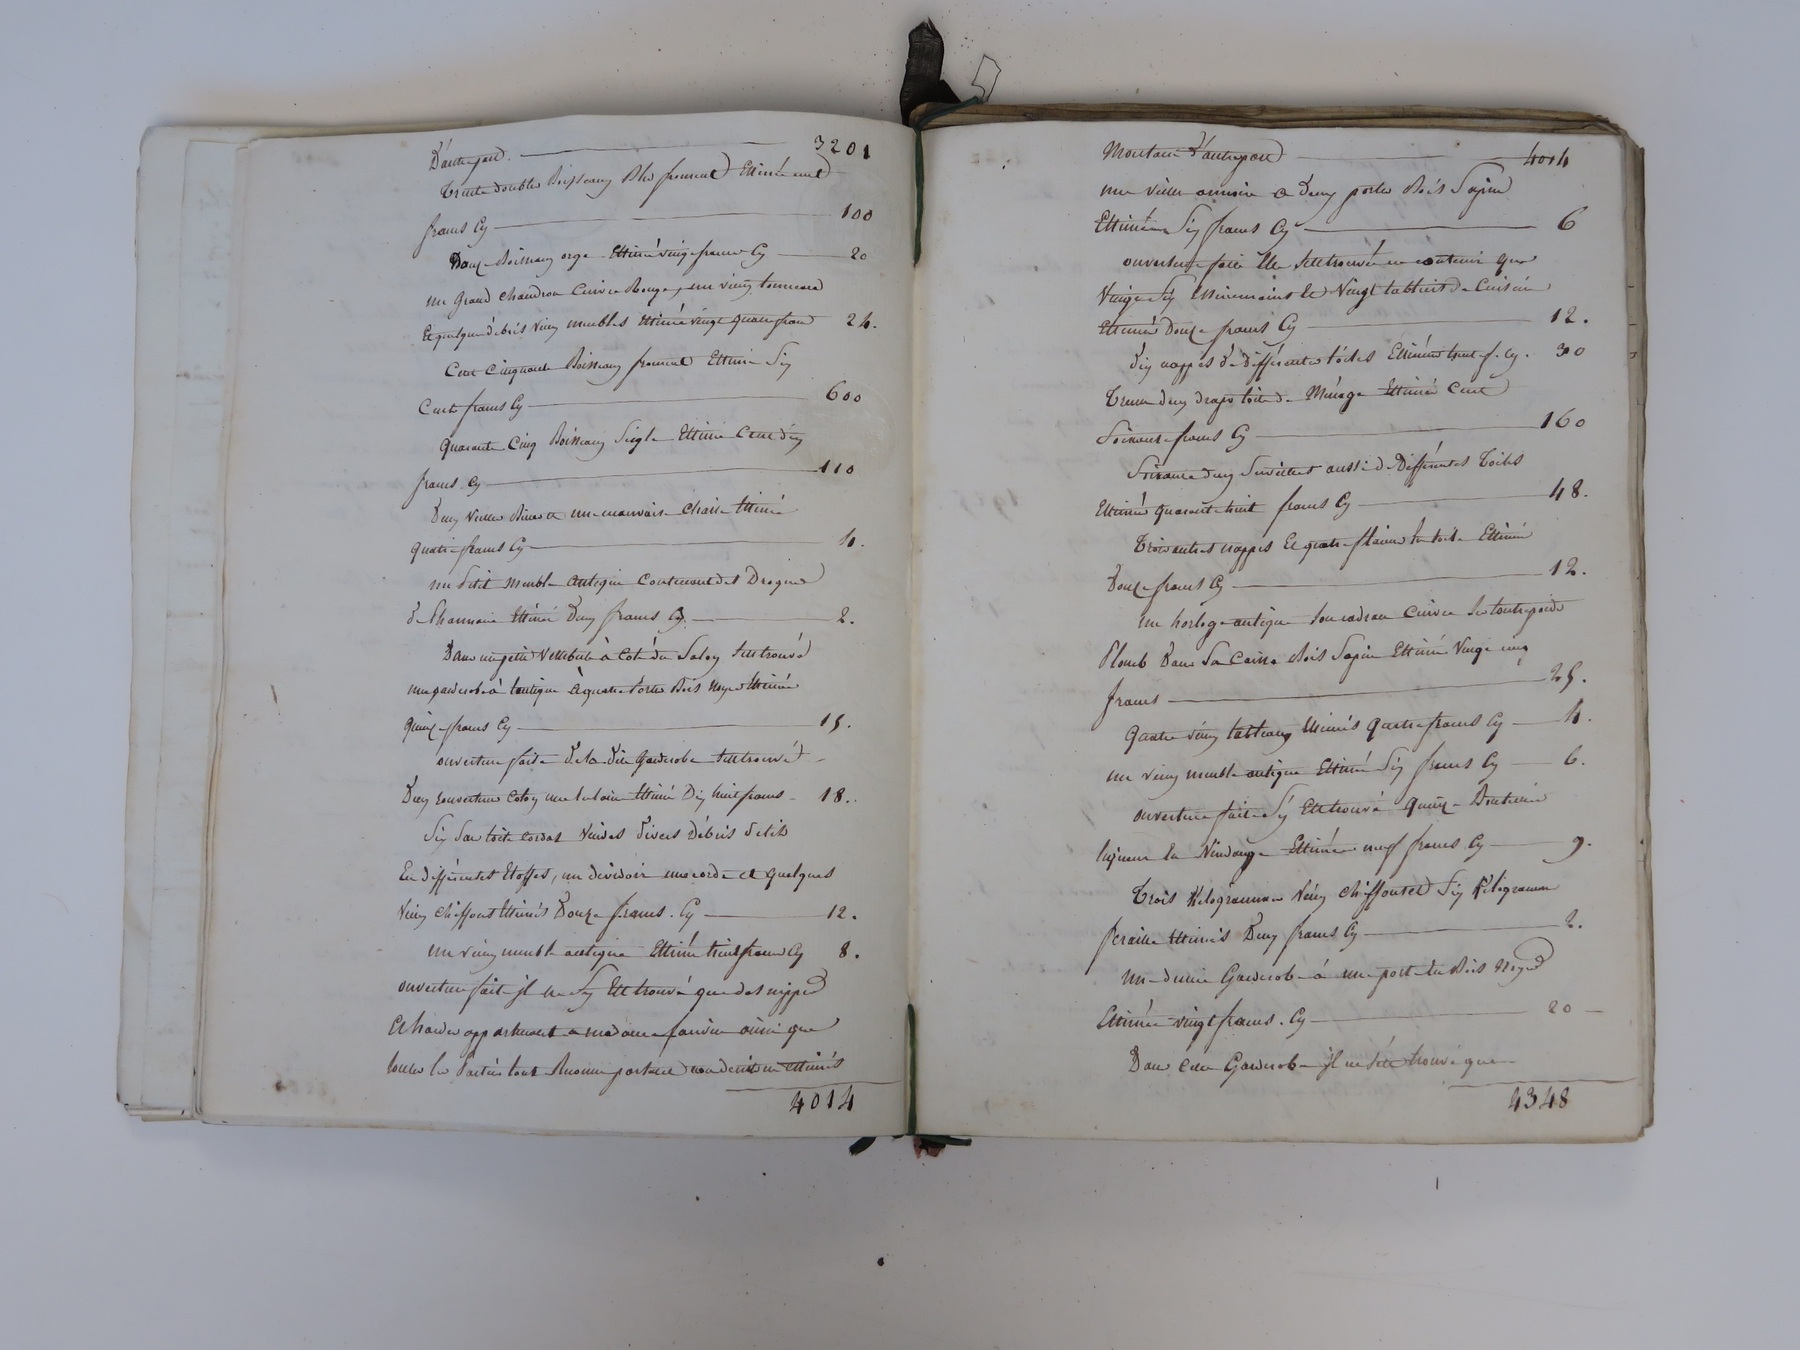 D'autre part. 3201
Trente doubles Boisseaux Bled froment Estimé cent
francs Cy 100
Douze Boisseaux orge Estimé vingt francs Cy 20
un Grand chaudron Cuivre Rouge, un vieux tonneau
Et quelque débris vieux meubles Estimé vingt quatre francs 24.
Cent Cinquante Boisseaux froment Estimé Six
Cent francs Cy 600
Quarante Cinq Boisseaux Seigle Estimé Cent dix
francs. Cy 110
Deux vielles et une mauvaise chaise Estimé
quatre francs Cy 4.
un Petit meuble antique Contenant des Drogues
de Pharmacie Estimé Deux francs Cy. 2.
Dans un petit Vestibule à Coté du Salon S'est trouvé
une garderobe à l'antique à quatre Portes Bois Noyer Estimée
Quinze francs Cy 15.
ouverture faite de la dite Garderobe S'est trouvé
Deux couvertures Coton une Estimé Dix huit francs 18.
Six Sac toile vuides divers Débris de lits
En différentes Etoffes, un dividoir une corde et quelques
vieux chiffons Estimés Douze francs. Cy 12.
un vieux meuble antique Estimé huit francs Cy 8.
ouverture faite il ne S'y Est trouvé que des nippes
Et hardes appartenant a madame ainsi que
4014
Montant D'autre part 4014
une vielle armoire a Deux portes Bois Sapin
Estimée Six francs Cy 6
ouverture faite Elle S'est trouvée ne contenir que
Vingt Six Essuiemains Et Vingt tabliers de Cuisine
Estimé Douze francs Cy 12.
dix nappes de différentes toiles Estimées trente f. Cy. 30
Trente deux draps toile de Ménage Estimé Cent
Soixante francs Cy 160
Soixante deux Serviettes aussi de Différentes Toiles
Estimé quarante huit francs Cy 48.
Trois autres nappes Et quatre toile Estimé
Douze francs Cy 12.
un horloge antique Son cadran Cuivre Ses contrepoids
Plomb Dans Sa Caisse Bois Sapin Estimé Vingt cinq
francs 25.
Quatre vieux tableaux Estimés Quatre francs Cy 4.
un vieux meuble antique Estimé Six francs Cy 6.
ouverture faite S'y Est trouvé Quinze Bouteilles
liqueur Estimée neuf francs Cy 9.
Trois Kilogrammes Vieux chiffons et Six Kilogrammes
feraille Estimés Deux francs Cy 2.
une Garderobe à une porte En Bois Noyer
Estimée vingt francs. Cy 20
Dans Cette Garderobe il ne S'est trouvé que
4348